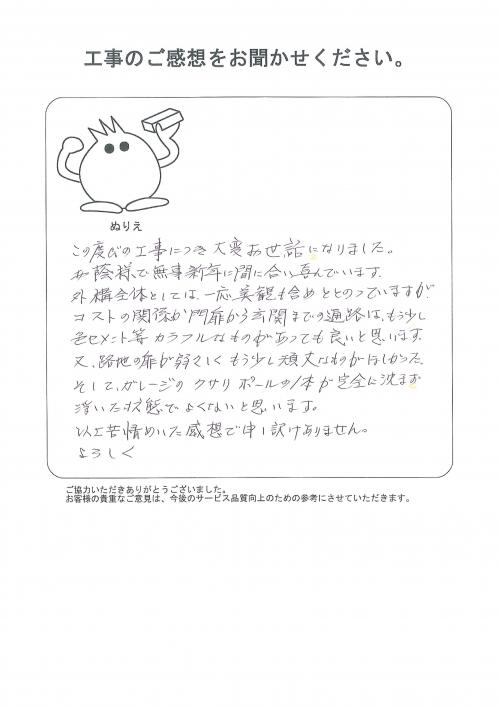 工事のご感想をお聞かせください。
ぬりえ
この度びの工事につき大変お世話になりました。
お蔭様で無事新年に間に合い喜んでいます。
外構全体としては、一応、美観も含めととのっていますが、
コストの関係か門扉から玄関までの通路は、もう少し
色セメント等カラフルなものがあっても良いと思います。
又、路地の扉が弱々しくもう少し頑丈なものがほしかった。
そして、ガレージのクサリポールの1本が完全に沈まず
浮いた状態でよくないと思います。
以上苦情めいた感想で申し訳けありません。
よろしく
ご協力いただきありがとうございました。
お客様の貴重なご意見は、今後のサービス品質向上のための参考にさせていただきます。